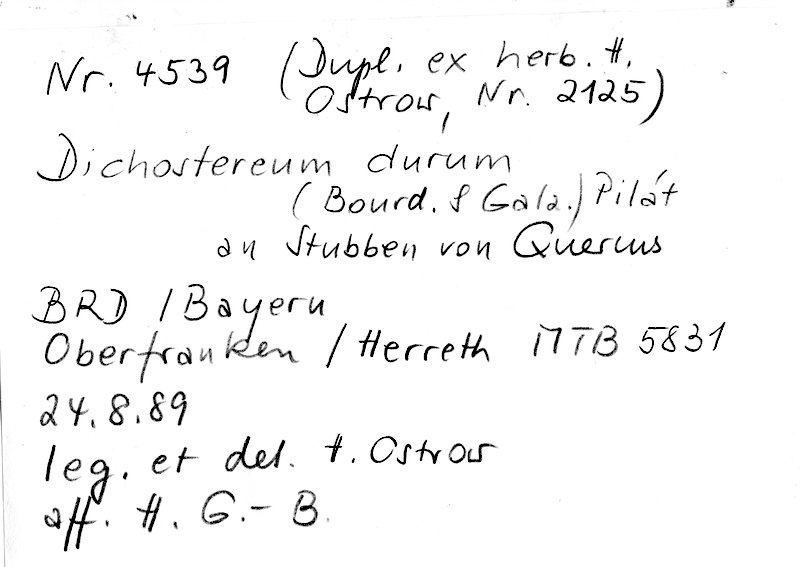 Nr. 4539 (Dupl. ex herb. H.
Ostrow, Nr. 2125)
Dichostereum durum
(Bourd. & Galz.) Pilát
an Stubben von Quercus
BRD / Bayern
Oberfranken / Herreth MTB 5831
24.8.89
leg. et det. H. Ostrow
aff. H. G.- B.